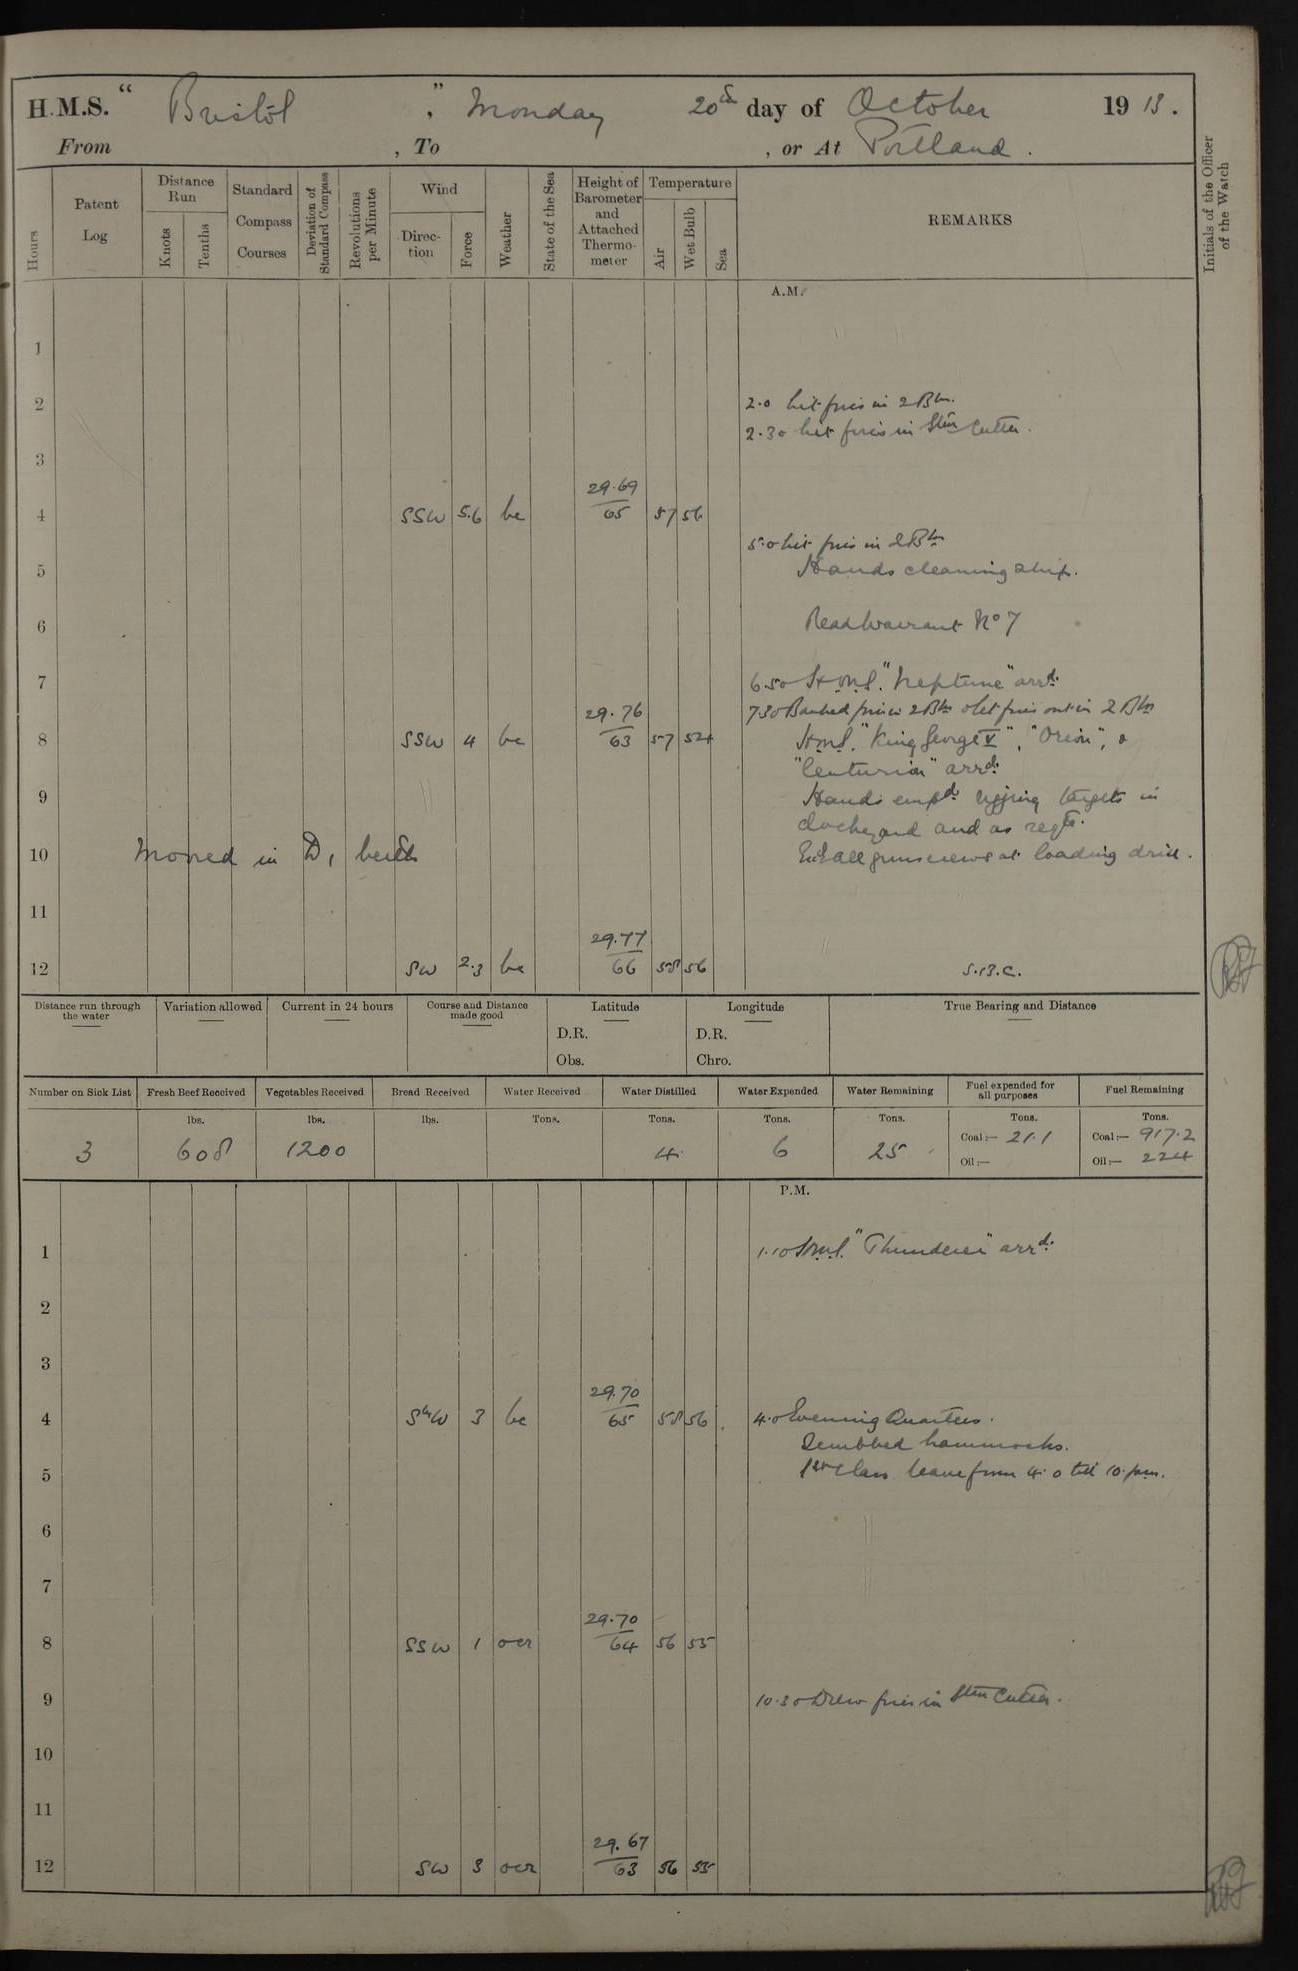 H.M.S. " Bristol " , Monday 20th day of October 1913.
From , To , or At Portland .
Hours
Patent Log
Distance Run
Knots
Tenths
Standard Compass Courses
Deviation of Standard Compass
Revolutions per Minute
Wind
Direction
Force
Weather
State of the Sea
Height of Barometer and Attached Thermometer
Temperature
Air
Wet Bulb
Sea
REMARKS
Initials of the Officer of the Watch
A.M.
1
2 2.0 Lit fires in 2 Brs.
2.30 Lit fires in Stm Cutter.
3
4 SSW 5.6 bc 29.69 65 57 56
5.0 Lit fires in 2 Brs
5 Hands cleaning ship.
6 Read Warrant No 7
7 6.50 H.M.S. "Neptune" arrd.
7.30 Banked fires in 2 Brs & let fires out in 2 Brs
8 SSW 4 bc 29.76 63 57 54 H.M.S. "King George V", "Orion", &
"Centurion" arrd.
9 Hands empd. rigging targets in
dockyard and as reqte.
10 Moored in D1 berth Exd all guns crews at loading drill.
11
12 SW 2.3 bc 29.77 66 58 56 S.B.C.
Distance run through the water
Variation allowed
Current in 24 hours
Course and Distance made good
Latitude
D.R.
Obs.
Longitude
D.R.
Chro.
True Bearing and Distance
Number on Sick List
Fresh Beef Received
Vegetables Received
Bread Received
Water Received
Water Distilled
Water Expended
Water Remaining
Fuel expended for all purposes
Fuel Remaining
lbs. lbs. lbs. Tons. Tons. Tons. Tons. Tons. Tons.
3 608 1200 4 6 25 Coal:— 21.1 Coal:— 917.2
Oil:— Oil:— 224
P.M.
1 1.10 H.M.S. "Thunderer" arrd.
2
3
4 SbyW 3 bc 29.70 65 58 56 4.0 Evening Quarters.
Scrubbed hammocks.
5 1st Class leave from 4.0 till 10. p.m.
6
7
8 SSW 1 ocr 29.70 64 56 55
9 10.30 Drew fires in Stm Cutter.
10
11
12 SW 3 ocr 29.67 63 56 55